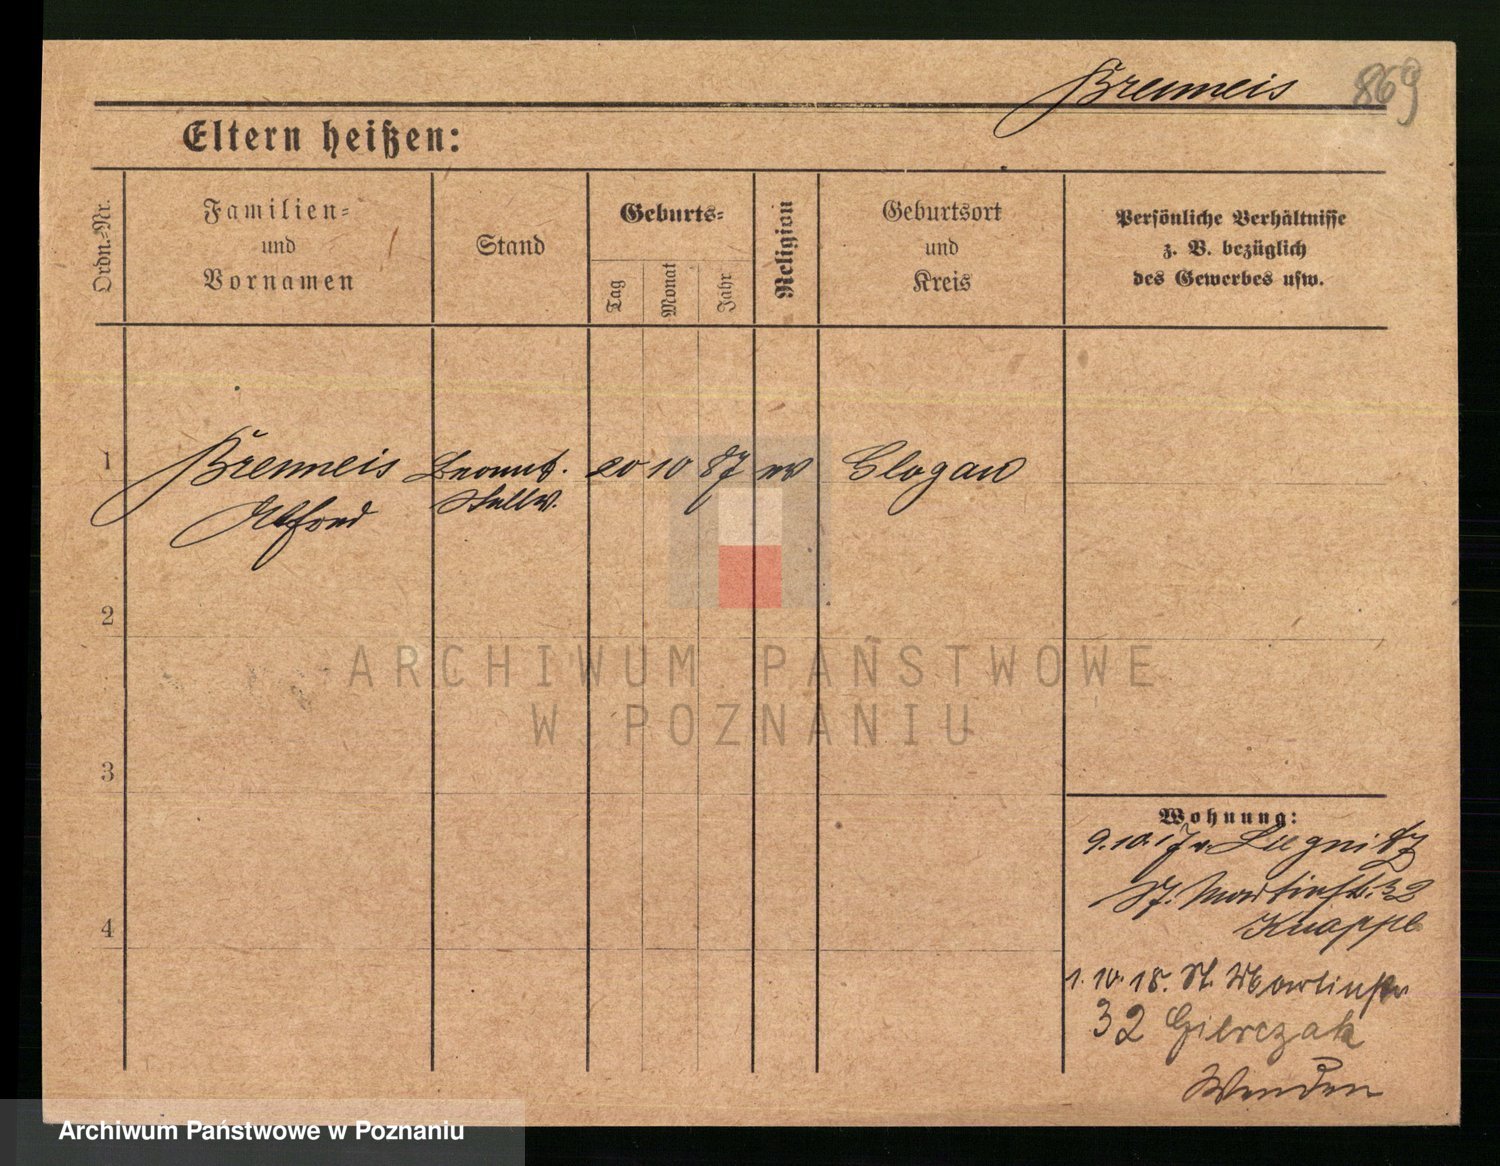 Brenneis 869
Eltern heißen:
Ordn.=Nr.
Familien=
und
Vornamen
Stand
Geburts=
Tag
Monat
Jahr
Religion
Geburtsort
und
Kreis
Persönliche Verhältnisse
z. B. bezüglich
des Gewerbes usw.
1 Brenneis 20 10 87 ev Glogau
Alfred
2
3
4
Wohnung:
9.10.17 v. Liegnitz
St. Martinstr. 32
Knappe
1.10.18. St. Martinstr
32 Gierczak
ARCHIWUM PAŃSTWOWE
W POZNANIU
Archiwum Państwowe w Poznaniu